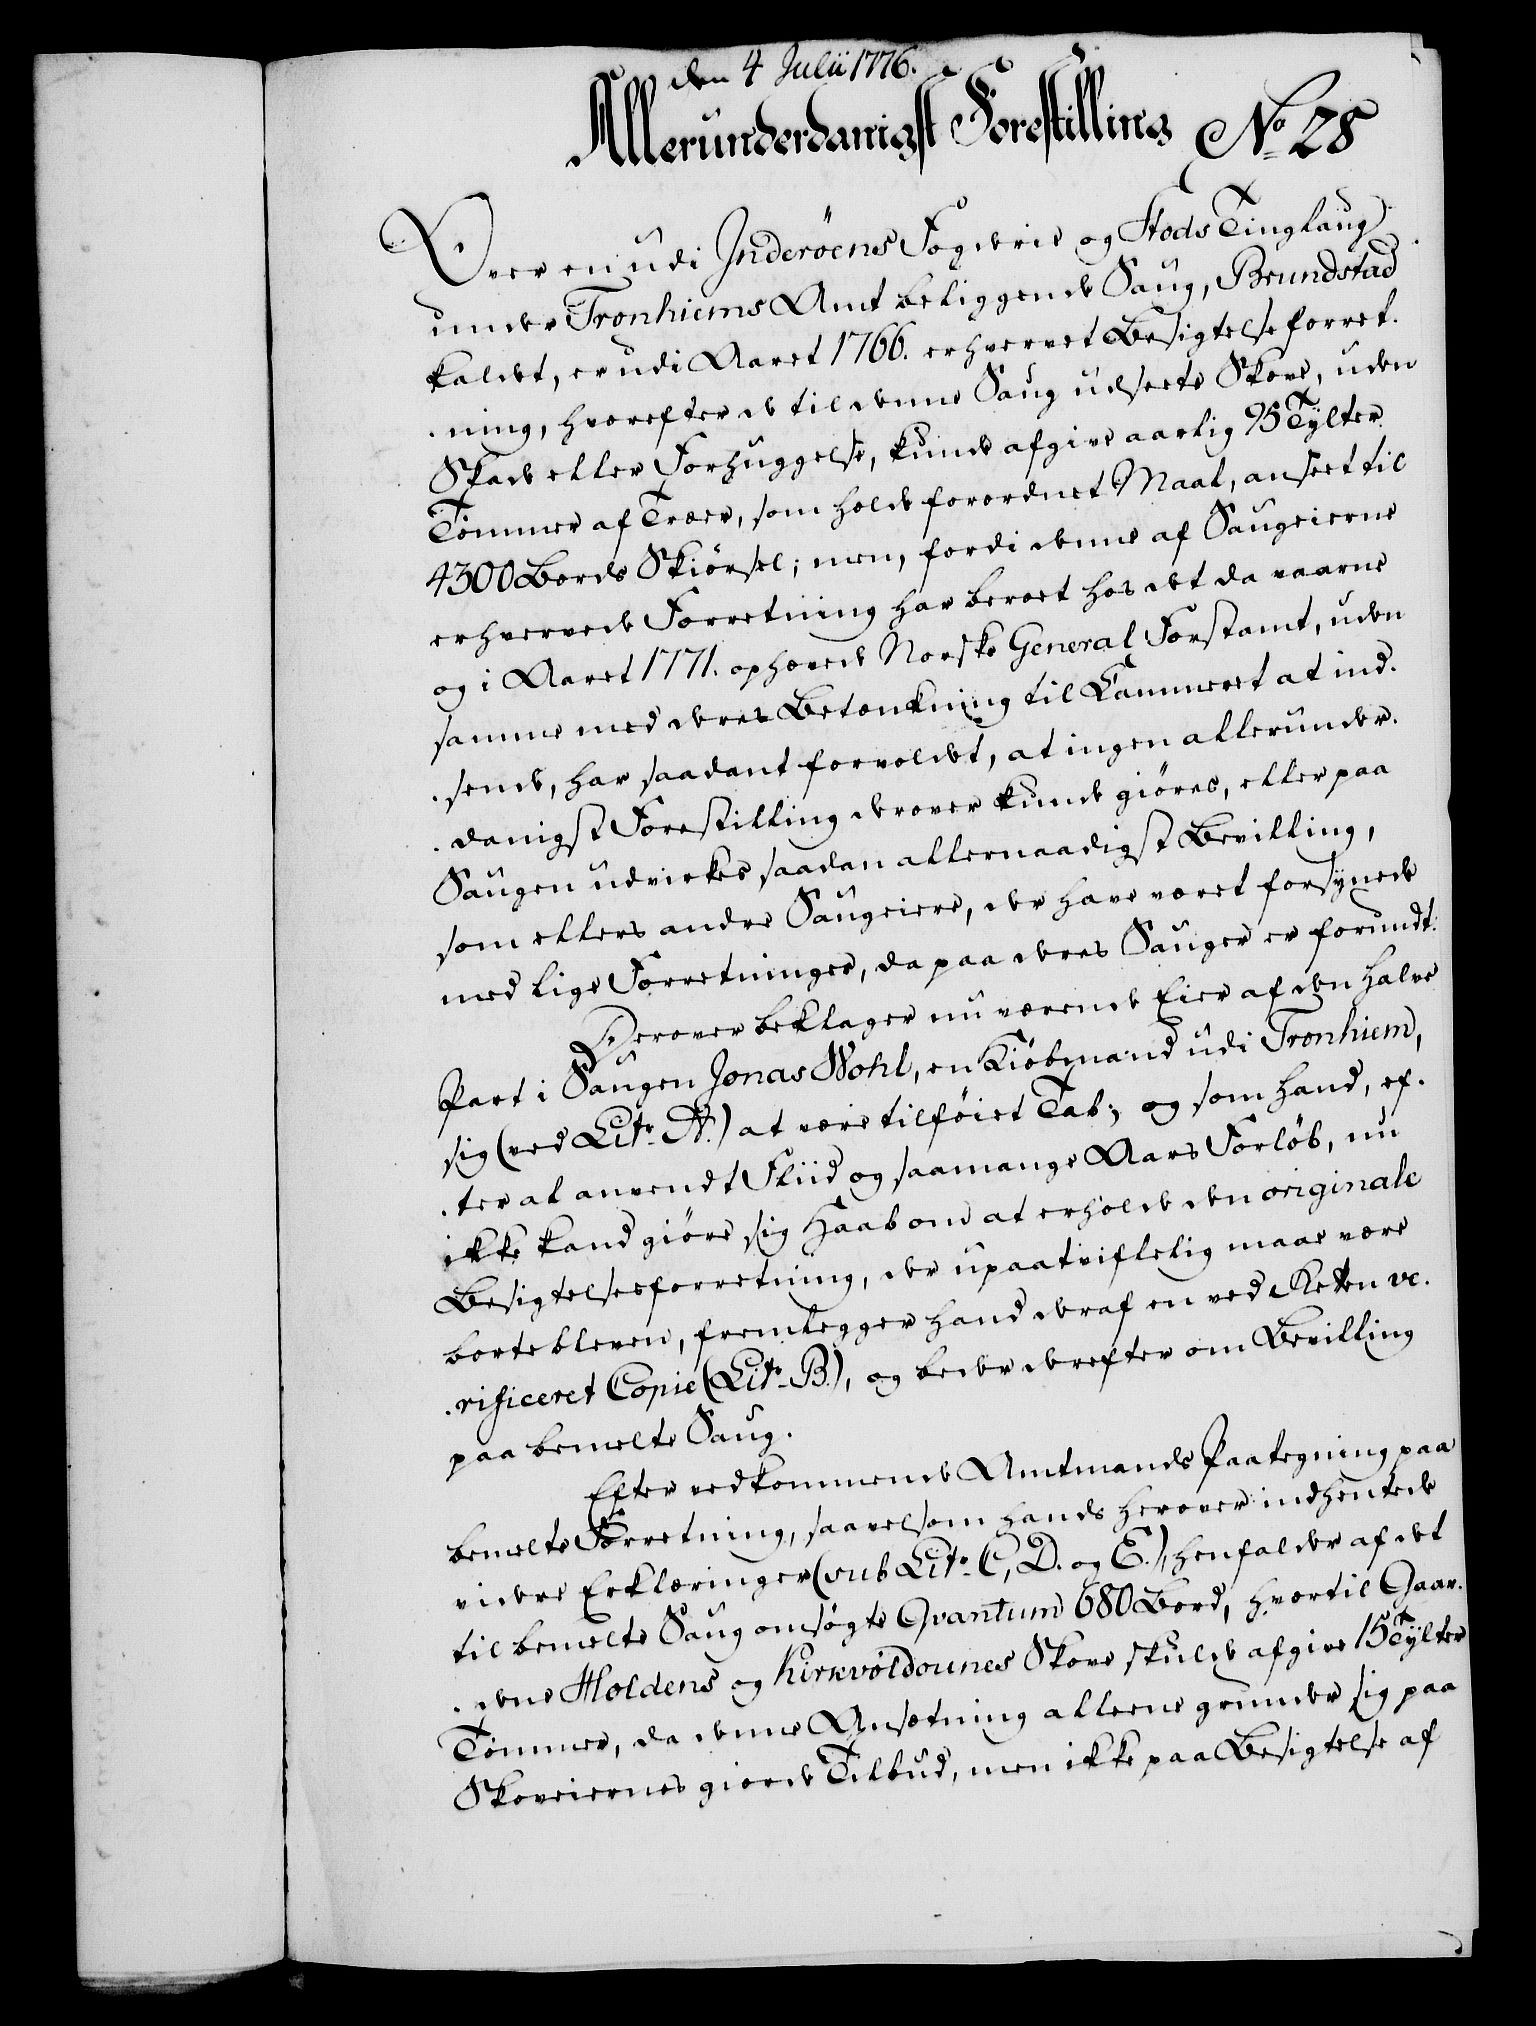 den 4 Julii 1776.
Allerunderdanigst Forestilling No 28
Over en udi Inderöens Fogderie og Stods Tinglaug
under Tronhiems Amt beliggende Saug, Brundstad
kaldet, er udi Aaret 1766. erhvervet Besigtelseforret-
-ning, hvorefter de til denne Saug udseete Skove, uden
Skade eller Forhuggelse, kunde afgive aarlig 95 Tylter
Tømmer af Træer, som holde forordnet Maal, anseet til
4300 Bords Skiørsel; men, fordi denne af Saugeierne
erhvervede Forretning har beroet hos det da værende
og i Aaret 1771. ophævede Norske General Forstamt, uden
samme med deres Betænkning til Kammeret at ind-
-sende, har saadant forvoldet, at ingen allerunder-
-danigst Forestilling derover kunde giøres, eller paa
Saugen udvirkes saadan allernaadigst Bevilling,
som ellers andre Saugeiere, der have været forsynede
med lige Forretninger, da paa deres Sauger er forundt.
Derover beklager nu værende Eier af den halve
Part i Saugen Jonas Wohl, en Kiøbmand udi Tronhiem,
sig (ved Litr. A.) at være tilføiet Tab; og som hand, ef-
-ter al anvendt Fliid og saamange Aars Forløb, nu
ikke kand giøre sig Haab om at erholde den originale
Besigtelsesforretning, der upaatviflelig maae være
borte bleven, fremlegger hand deraf en ved Retten ve-
-rificeret Copie (Litr. B.), og beder derefter om Bevilling
paa bemelte Saug.
Efter vedkommende Amtmands Paategning paa
bemelte Forretning, saavelsom hands herover indhentede
videre Erklæringer (sub Litr. C, D. og E.), henfalder af det
til bemelte Saug ansøgte Qvantum 680 Bord, hvortil Gaar-
-dene Holdens og Kirkevöldounes Skove skulde afgive 15 Tylter
Tømmer, da denne Ansætning alleene grunder sig paa
Skoveiernes giorde Tilbud, men ikke paa Besigtelse af